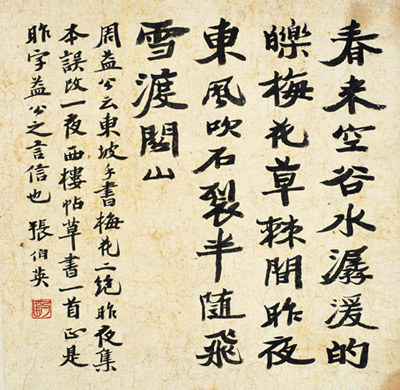 春来空谷水潺湲的
皪梅花草棘間昨夜
東風吹石裂半随飛
雪渡関山
周益公云東坡手書梅花二绝昨夜集
本誤改一夜西樓帖草書一首正是
昨字益公之言信也 張伯英